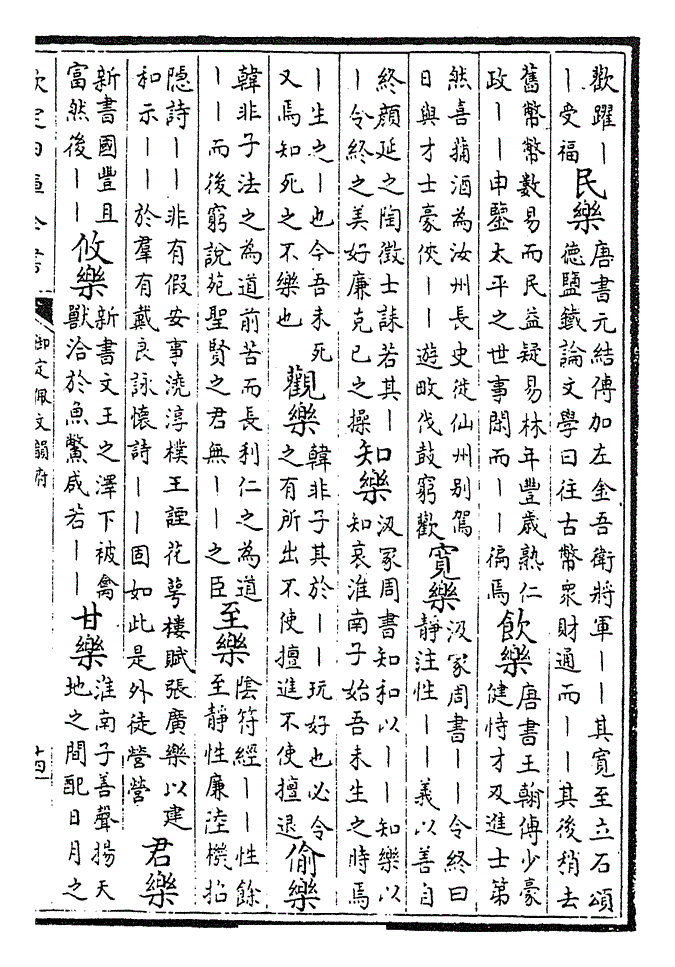 歡躍丨
丨受福
民樂
唐書元結傳加左金吾衛將軍丨丨其寛至立石頌
德鹽鐵論文學曰往古幣衆財通而丨丨其後稍去
舊幣幣數易而民益疑易林年豐歲熟仁
政丨丨申鑒太平之世事閒而丨丨徧焉
飲樂
唐書王翰傳少豪
健恃才及進士第
然喜蒱酒為汝州長史徙仙州别駕
日與才士豪俠丨丨遊畋伐鼓窮歡
寛樂
汲冢周書丨丨令終曰
靜注性丨丨義以善自
終顔延之陶徵士誄若其丨
丨令終之美好廉克己之操
知樂
汲冢周書知和以丨丨知樂以
知哀淮南子始吾未生之時焉
丨生之丨也今吾未死
又焉知死之不樂也
觀樂
韓非子其於丨丨玩好也必令
之有所出不使擅進不使擅退
偷樂
韓非子法之為道前苦而長利仁之為道
丨丨而後窮說苑聖賢之君無丨丨之臣
至樂
陰符經丨丨性餘
至靜性廉陸機招
隱詩丨丨非有假安事澆淳樸王諲花萼樓賦張廣樂以建
和示丨丨於羣有戴良詠懷詩丨丨固如此是外徒營營
君樂
新書國豐且
富然後丨丨
攸樂
新書文王之澤下被禽
獸洽於魚鱉咸若丨丨
甘樂
淮南子善聲揚天
地之間配日月之
欽定四庫全書
御定佩文韻府